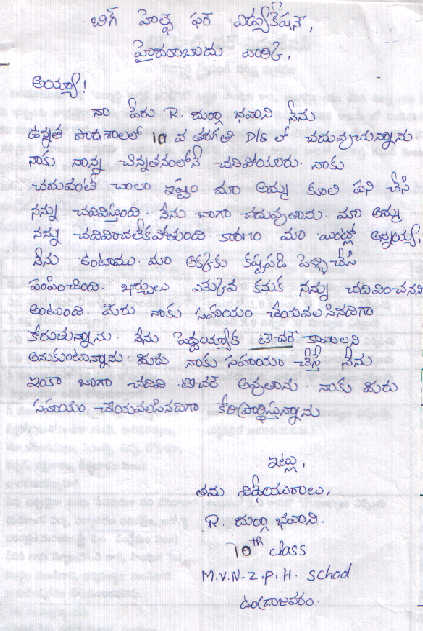 బిగ్ హెల్ప్ ఫర్ ఎడ్యుకేషన్,
హైదరాబాదు వారికి,
అయ్యా!
నా పేరు R. దుర్గా భవాని నేను
ఉన్నత పాఠశాలలో 10 వ తరగతి D/S లో చదువుచున్నాను.
నాకు నాన్న చిన్నతనంలోనే చనిపోయారు. నాకు
చదువంటే చాలా ఇష్టం మా అమ్మ కూలి పని చేసి
నన్ను చదివిస్తుంది. నేను బాగా చదువుతాను. మా అమ్మ
నన్ను చదివించలేకపోతుంది కారణం మా ఇంట్లో అమ్మమ్మ,
నేను ఉంటాము. మా అక్కకు కష్టపడి పెళ్ళి చేసి
పంపించింది. ఖర్చులు ఎక్కువ కనుక నన్ను చదివించనని
అంటుంది. మీరు నాకు సహాయం చేయవలసినదిగా
కోరుతున్నాను. నేను పెద్దయ్యాక టీచర్ కావాలని
అనుకుంటున్నాను. మీరు నాకు సహాయం చేస్తే నేను
ఇంకా బాగా చదివి టీచర్ అవుతాను. నాకు మీరు
సహాయం చేయవలసినదిగా కోరిప్రార్థిస్తున్నాను
ఇట్లు,
తమ విధేయురాలు,
R. దుర్గా భవాని.
10TH class
M.V.N.Z.P.H. School
ఉండ్రాజవరం.